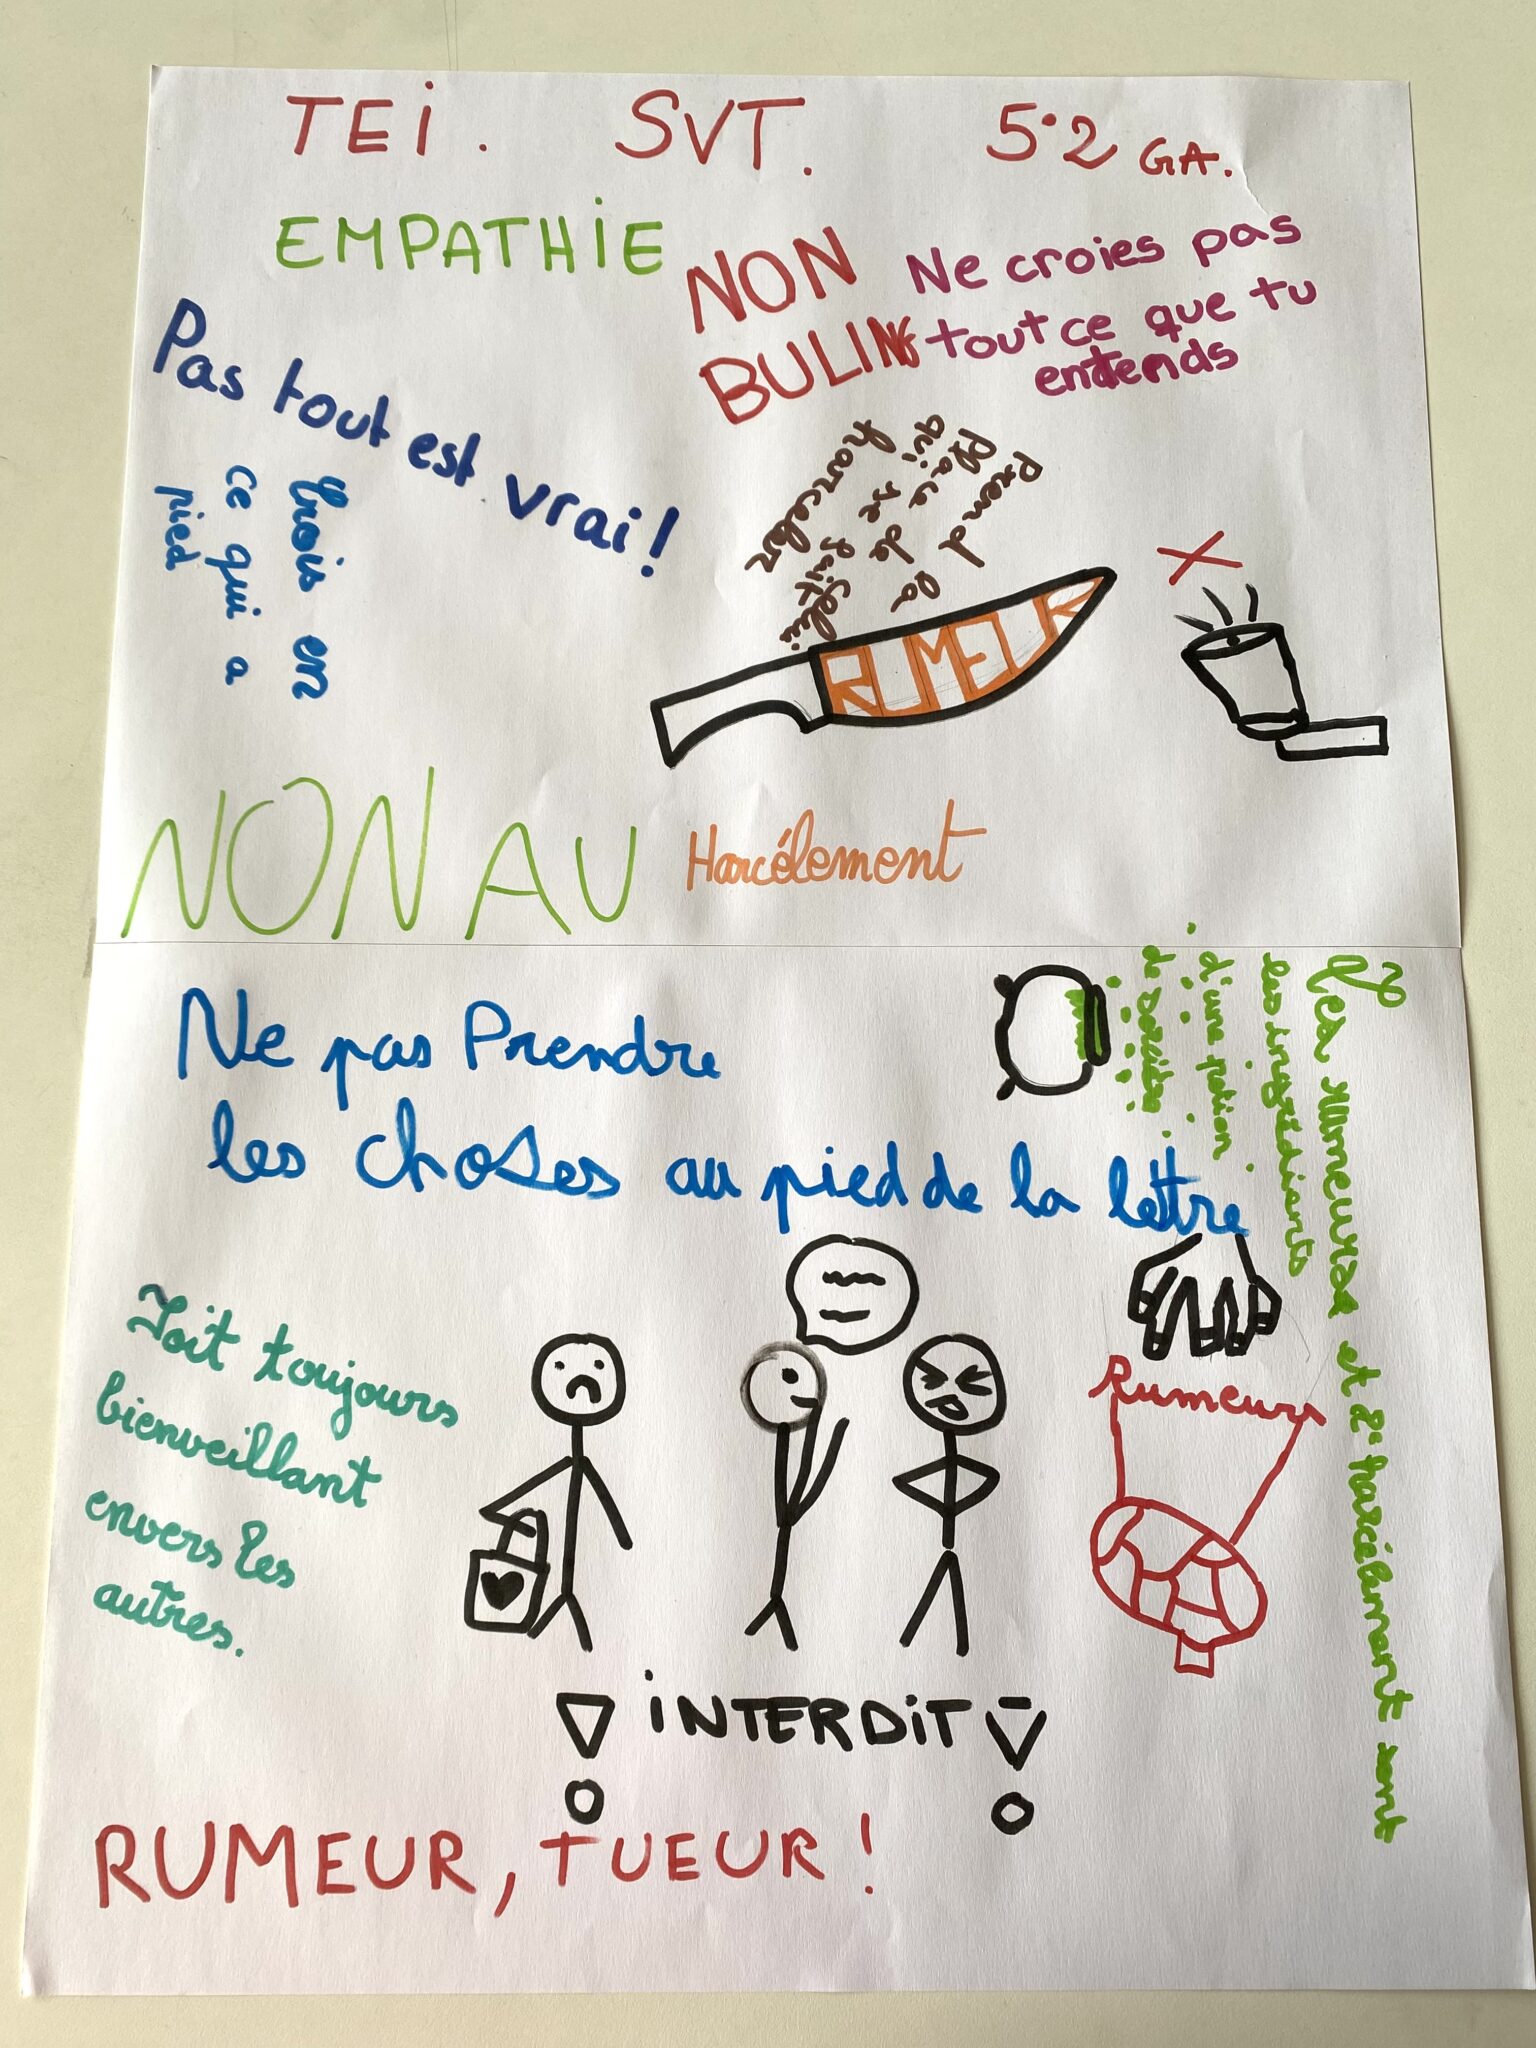 TEI. SVT. 5°2 GA.
EMPATHIE
NON
BULING
Ne croies pas
tout ce que tu
entends
Pas tout est vrai!
Crois en
ce qui a
pied
Prend la
place de
qui se fait
harceler
RUMEUR
NON AU Harcélement
Ne pas Prendre
les choses au pied de la lettre
Les rumeurs et l'harcélement sont
les ingrédients
d'une potion
de sorcière
Soit toujours
bienveillant
envers les
autres.
Rumeurs
INTERDIT
RUMEUR, TUEUR !